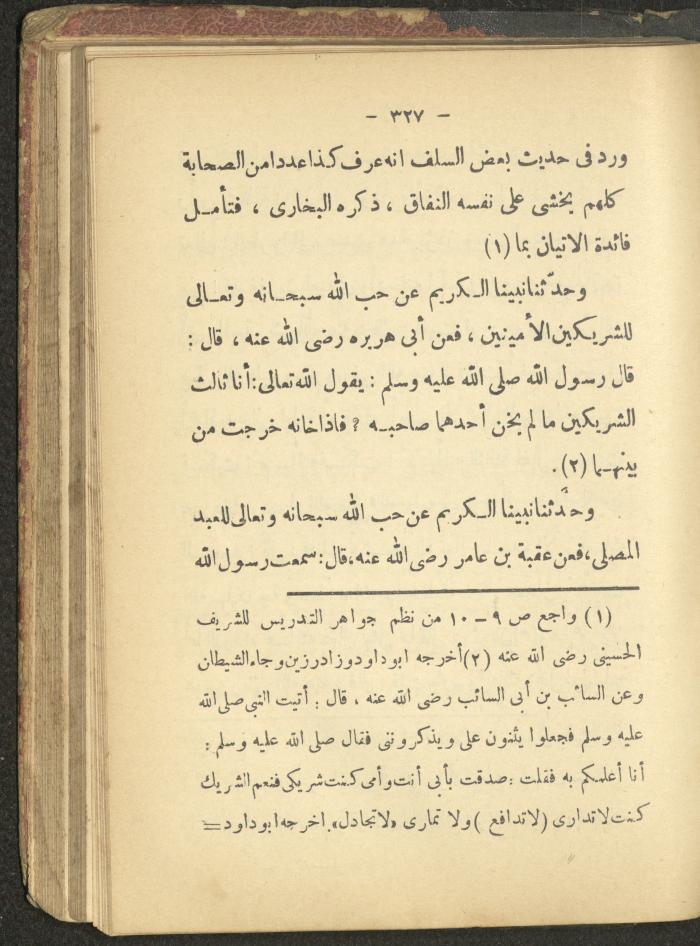 - ٣٢٧ -
ورد فى حديث بعض السلف انه عرف كذا عددا من الصحابة
كلهم يخشى على نفسه النفاق ، ذكره البخارى ، فتأمل
فائدة الاتيان بما (١)
وحدّثنا نبينا الكريم عن حب الله سبحانه وتعالى
للشريكين الأمينين ، فعن أبى هريره رضى الله عنه ، قال :
قال رسول الله صلى الله عليه وسلم : يقول الله تعالى : أنا ثالث
الشريكين ما لم يخن أحدهما صاحبه ؟ فاذا خانه خرجت من
بينهما (٢) .
وحدّثنا نبينا الكريم عن حب الله سبحانه وتعالى للعبد
المصلى ، فعن عقبة بن عامر رضى الله عنه ، قال : سمعت رسول الله
(١) واجع ص ٩ - ١٠ من نظم جواهر التدريس للشريف
الحسينى رضى الله عنه (٢) أخرجه ابو داود وزاد رزين وجاء الشيطان
وعن السائب بن أبى السائب رضى الله عنه ، قال : أتيت النبى صلى الله
عليه وسلم فجعلوا يثنون على ويذكروننى فقال صلى الله عليه وسلم :
أنا أعلمكم به فقلت : صدقت بأبى أنت وأمى كنت شريكى فنعم الشريك
كنت لا تدارى (لا تدافع ) ولا تمارى «لا تجادل» . اخرجه ابو داود =